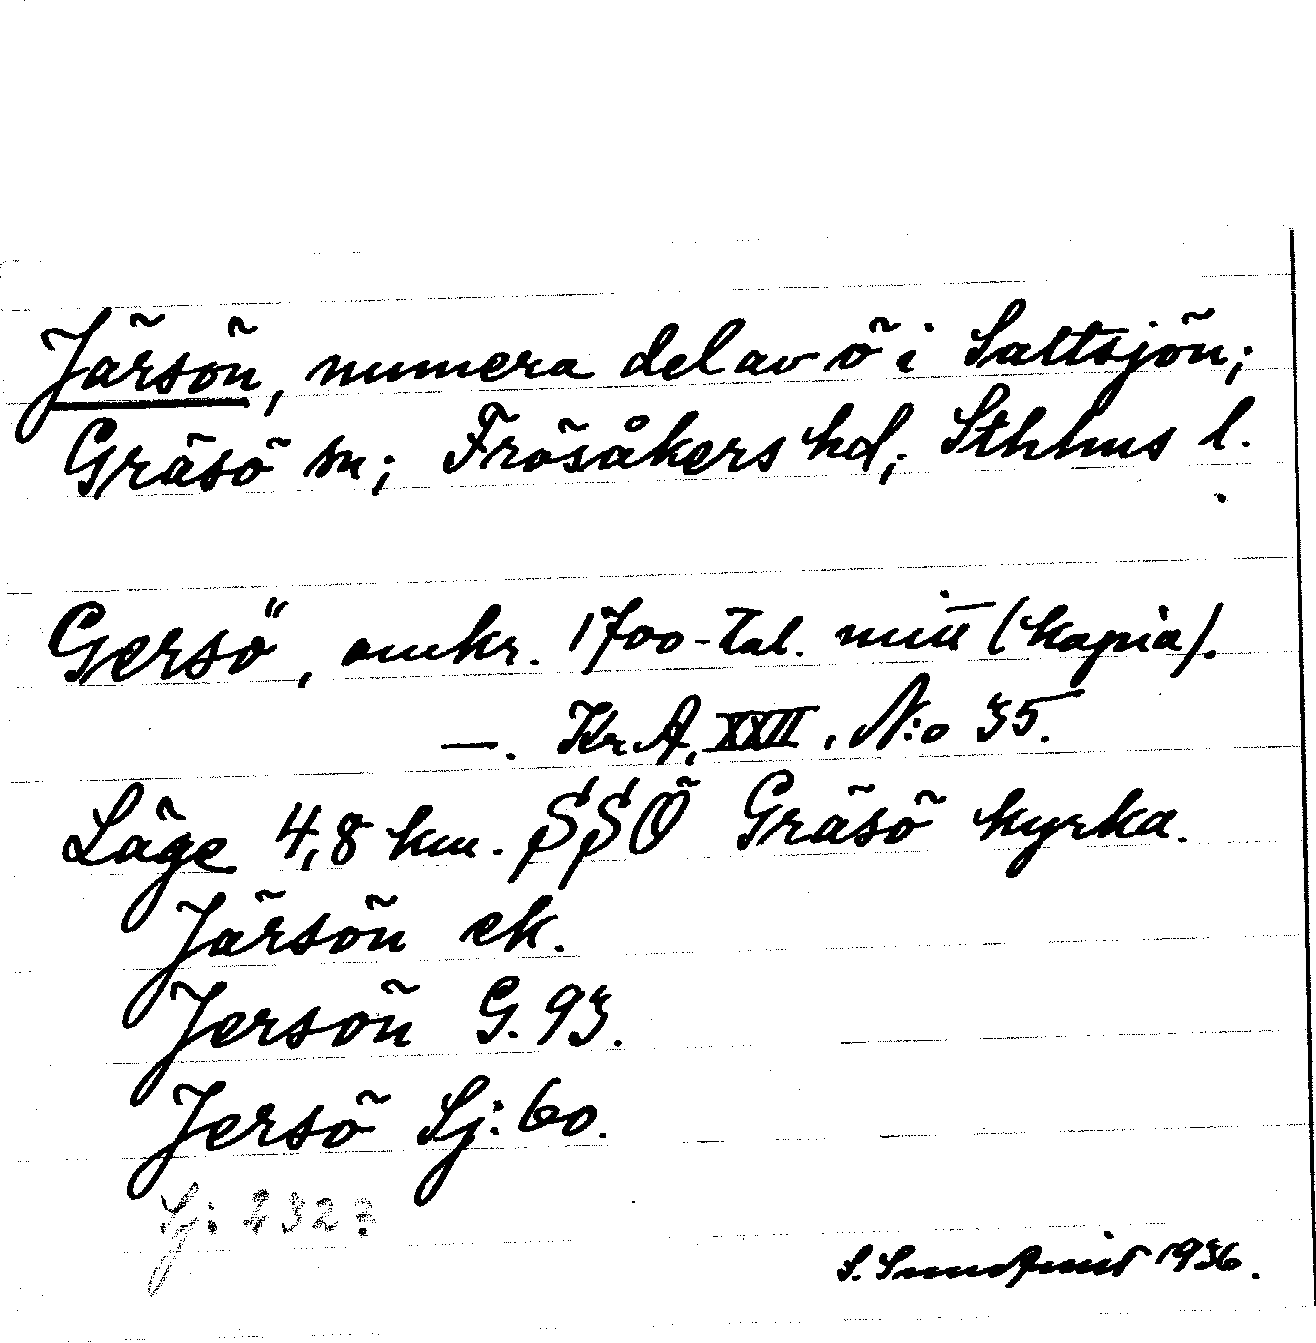 Järsön, numera del av ö i Saltsjön;
Gräsö sn; Frösåkers hd; Sthlms l.
Gersö", omkr. 1700-tal. mitt (kopia).
—. Kr A, XXII. N:o 35.
Läge 4,8 km. SSÖ Gräsö kyrka.
Järsön ek.
Jersön G. 93.
Jersö Sj: 60.
Sj: 232?
S. Sundqvist 1936.